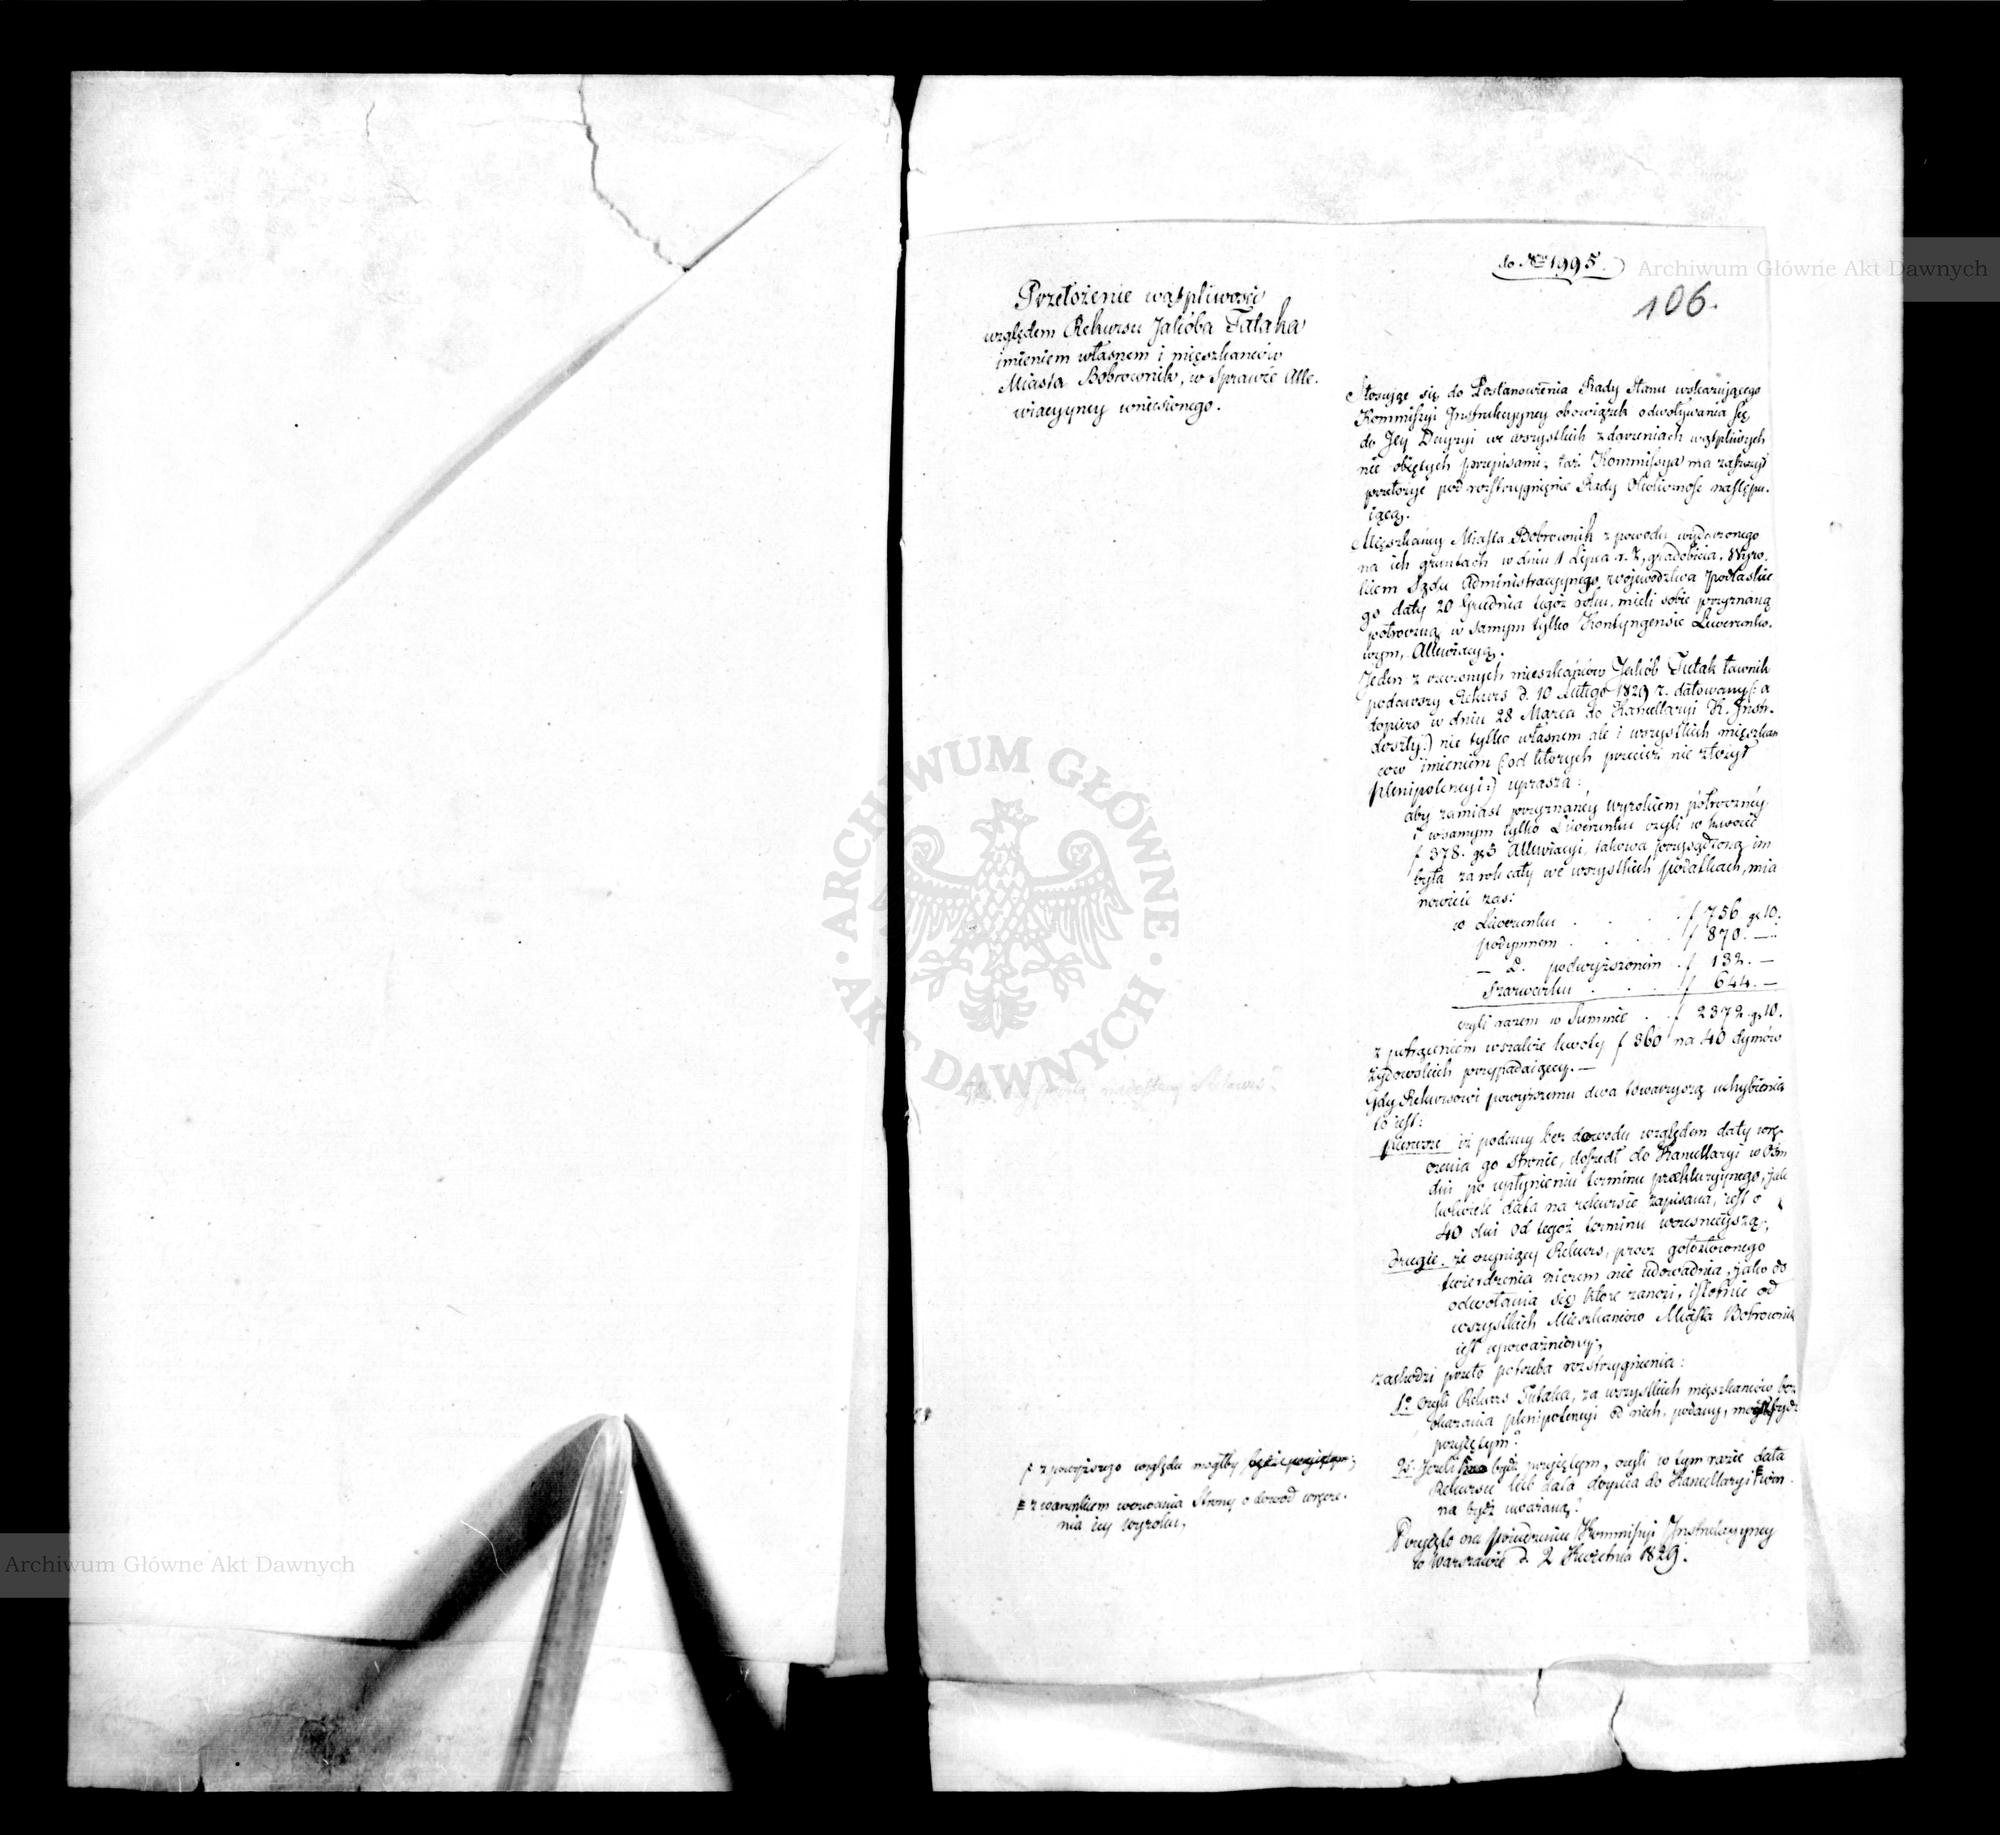 do Nru 1995.
106.
Przełożenie wątpliwości
względem Rekursu Jakóba Tutaka
imieniem własnem i mięszkanców
Miasta Bobrownik, w Sprawie Alle-
wiacyyney wniesionego.
Stosując się do Postanowienia Rady Stanu wskazującego
Kommissyi Instrukcyyney obowiązek odwoływania się
do Jey Decyzyi we wszystkich zdarzeniach wątpliwych
nie objętych przepisami, taż Kommissya ma zaszczyt
przełożyć pod rozstrzygnięcie Rady Okoliczność następu-
iącą.
Mięszkańcy Miasta Bobrownik z powodu wydarzonego
na ich gruntach w dniu 1 Lipca r. z. gradobicia, Wyro-
kiem Sądu Administracyynego Województwa Podlaskie-
go daty 20 Grudnia tegoż roku, mieli sobie przyznaną
półroczną w samym tylko Kontyngensie Liwerunko-
wym, Allewiacyą.
Jeden z rzeczonych mieszkańców Jakób Tutak ławnik
podawszy Rekurs d. 10 Lutego 1829 r. datowany (: a
dopiero w dniu 28 Marca do Kancellaryi K. Instr.
doszły:) nie tylko własnem ale i wszystkich mięszkań
ców imieniem (: od których przecież nie złożył
plenipotencyi:) uprasza:
aby zamiast przyznanéy Wyrokiem półrocznéy
i w samym tylko Liwerunku czyli w kwocie
f 378. gr 5 Allewiacyi, takowa przysądzoną im
była za rok cały we wszystkich podatkach, mia
nowicie zaś:
w Liwerunku . . . . f 756 gr 10.
podymnem . . . . f 870. —
— D. podwyższonem . f 132. —
Szarwarku . . . . f 644. —
czyli razem w Summie . . f 2372 gr 10.
z potrąceniem wszakże kwoty f 360 na 40 dymów
żydowskich przypadaiącey. —
Gdy Rekursowi powyższemu dwa towarzyszą uchybienia
to iest:
pierwsze iż podany bez dowodu względem daty wrę-
czenia go stronie, doszedł do Kancellaryi w Ośm
dni po upłynieniu terminu prekluzyynego, jak
kolwiek data na rekursie zapisana, iest o
40 dni od tegoż terminu wcześnieyszą;
drugie. że czyniący Rekurs, prócz gołosłownego
twierdzenia niczem nie udowadnia, jako do
odwołania się które zanosi, istotnie od
wszystkich Mieszkanców Miasta Bobrownik
iest upoważniony;
zachodzi przeto potrzeba rozstrzygnienia:
1o czyli Rekurs Tutaka, za wszystkich mięszkanców bez
okazania plenipotencyi od nich, podany, może bydź
przyiętym?
2o. Jeżeli bydź przyiętym, czyli w tym razie data
Rekursu lub data doyścia do Kancellaryi win-
na bydź uważaną?
Przyięto na posiedzeniu Kommissyi Instrukcyyney
w Warszawie d. 2 Kwietnia 1829.
z powyższego względu mogłby bydź przyiętym;
z warunkiem wezwania Strony o dowód wręcze-
nia iey wyroku,
Archiwum Główne Akt Dawnych
Archiwum Główne Akt Dawnych
ARCHIWUM GŁÓWNE AKT DAWNYCH